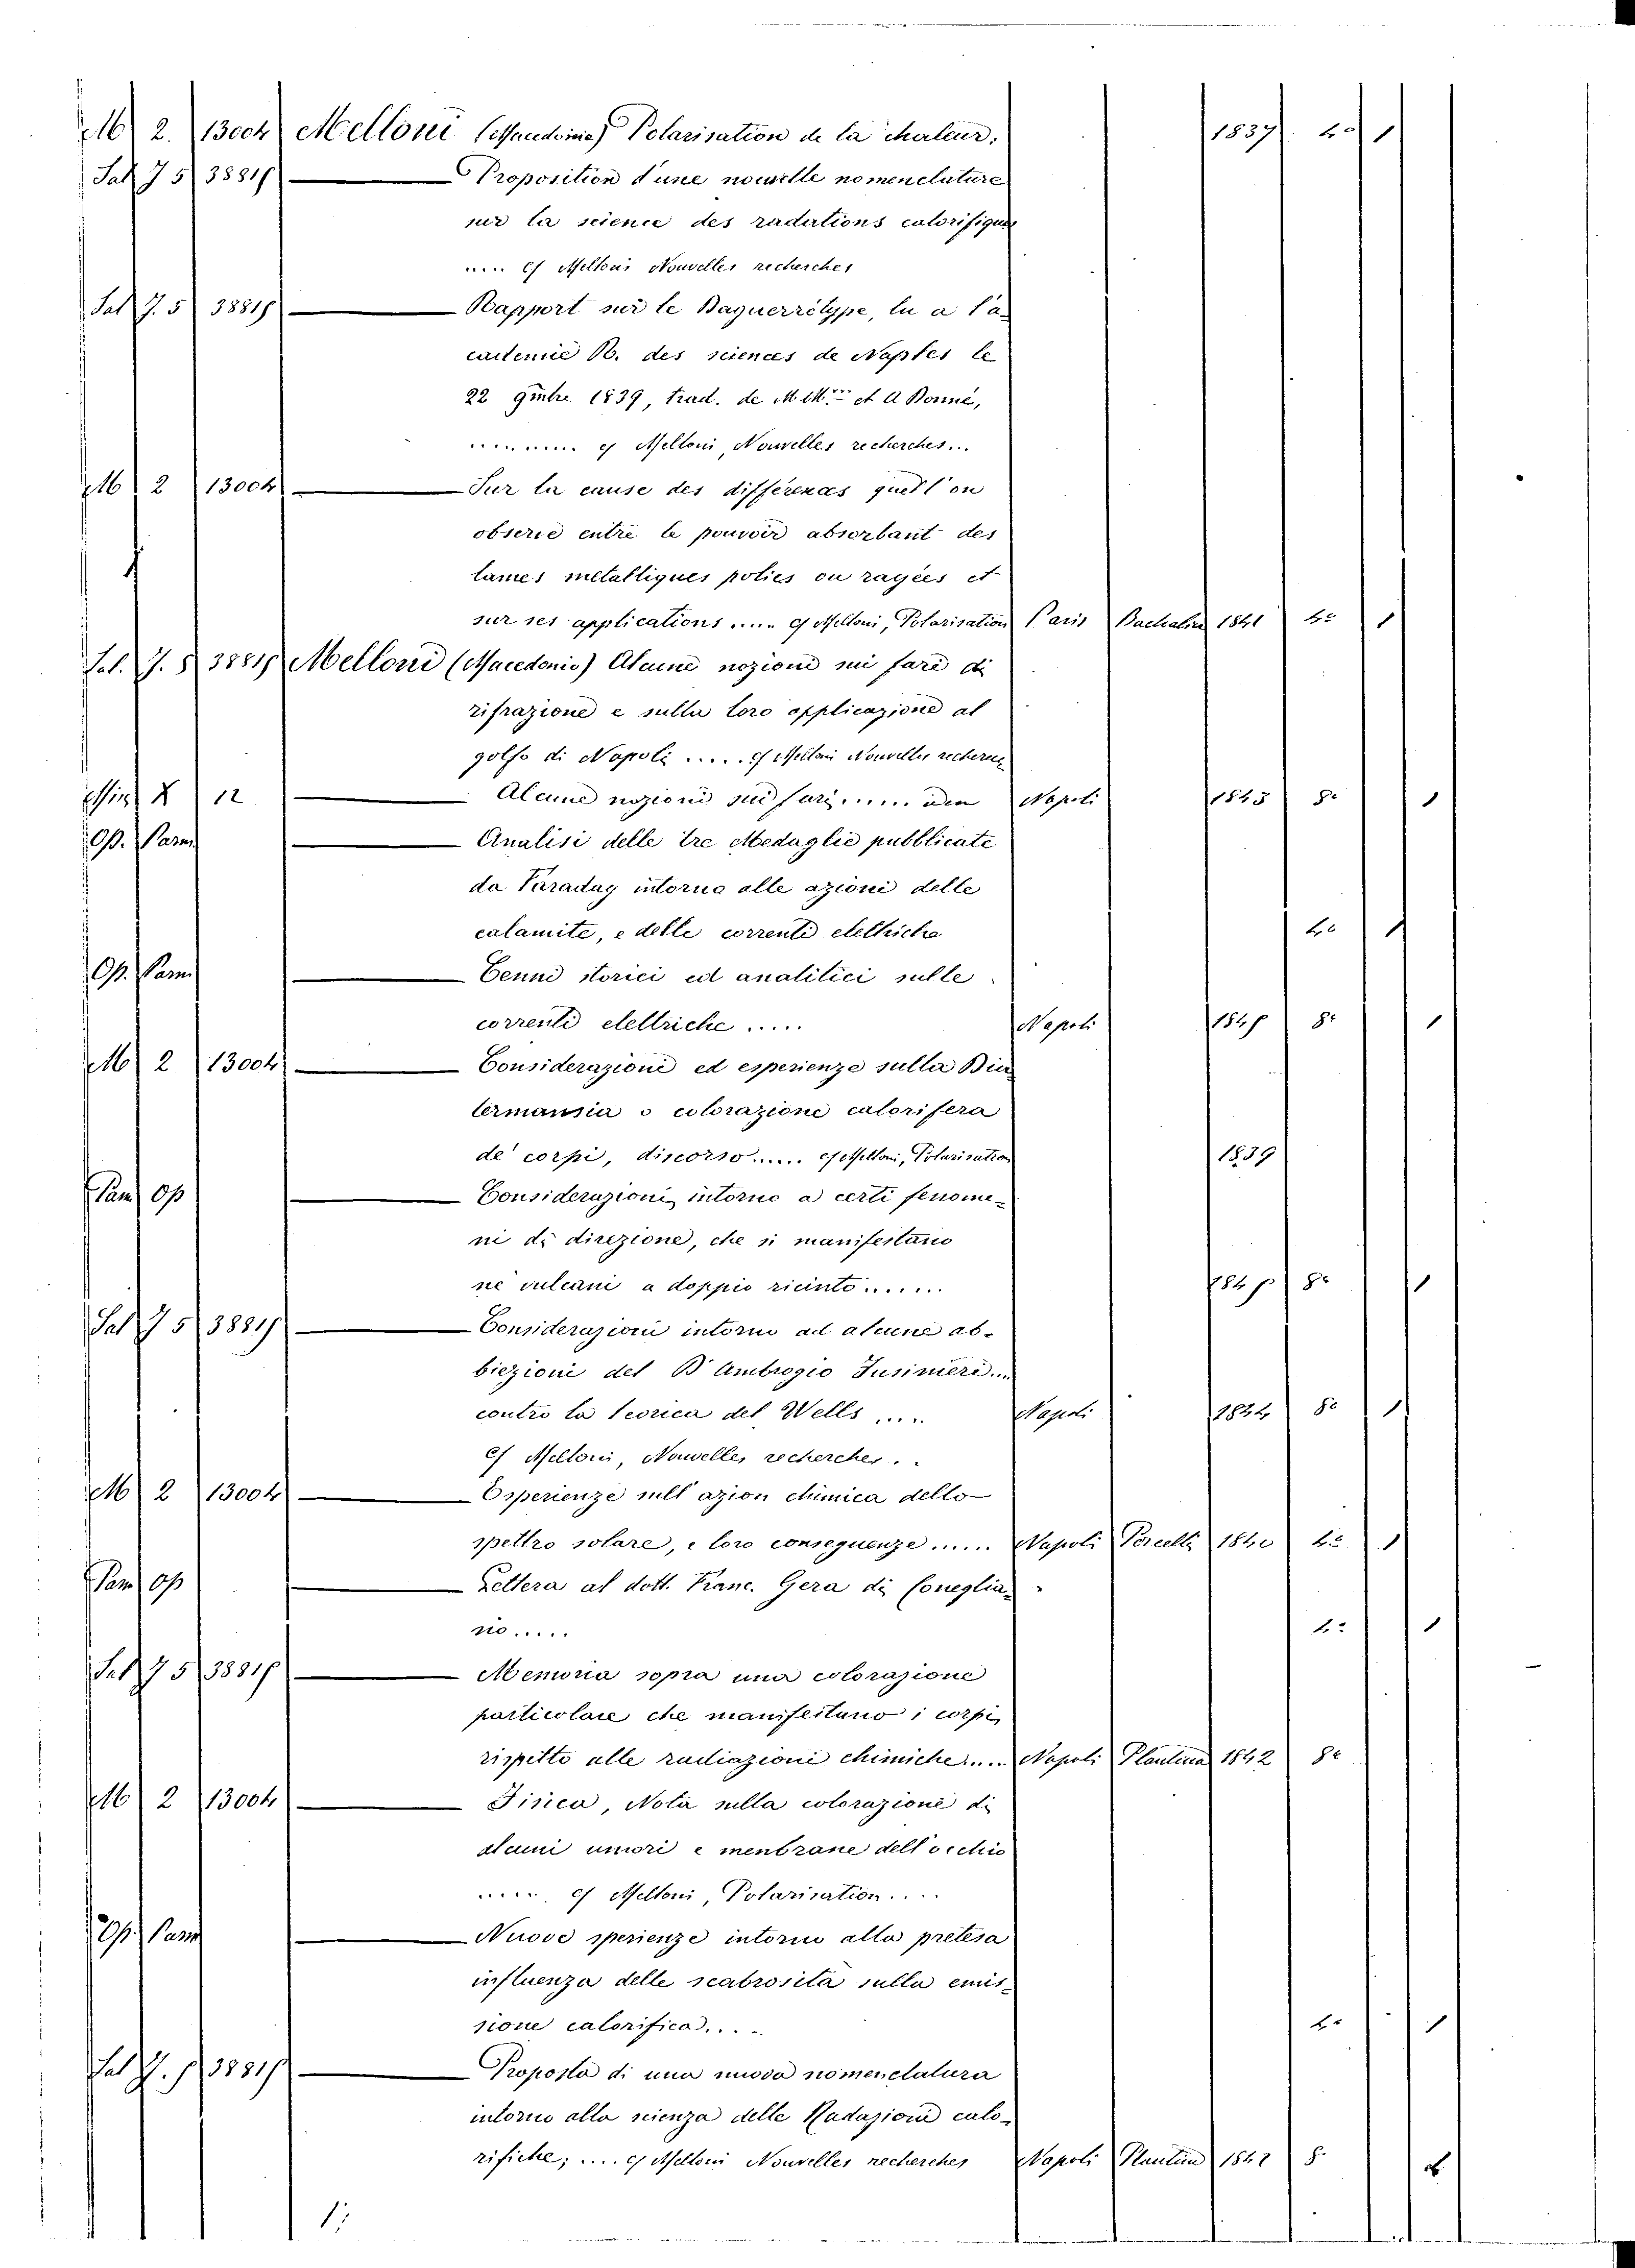 M 2. 13004 Melloni (Macedonio) Polarisation de la chaleur. 1837 4° 1
Sal J 5 38815 Proposition d'une nouvelle nomenclature
sur la science des radations calorifiques
.... Cf Melloni Nouvelles recherches
Sal J. 5 38815 Rapport sur le Daguerréotype, lu a l'a-
cademie R. des sciences de Naples le
22 9mbre 1839, trad. de M.M.rs et A Donné,
........ Cf Melloni, Nouvelles recherches...
M 2 13004 Sur la cause des différences que l'on
observe entre le pouvoir absorbant des
lames métalliques polies ou rayées et
sur ses applications .... Cf Melloni, Polarisation Paris Bachalin 1841 4° 1
Sal. J. 5 38815 Melloni (Macedonio) Alcune nozioni sui fari di
rifrazione e sulla loro applicazione al
golfo di Napoli ..... Cf Melloni Nouvelles recherces
12 Alcune nozioni sui fari ..... idem Napoli 1843 8° 1
Op. Parm Analisi delle tre Medaglie pubblicate
da Faraday intorno alle azioni delle
calamite, e delle correnti elettriche 4° 1
Op. Parm Cenni storici ed analitici sulle
correnti elettriche ..... Napoli 1845 8° 1
M 2 13004 Considerazioni ed esperienze sulla Dia
termansia o colorazione calorifera
de' corpi, discorso ..... Cf Melloni, Polarisation 1839
Parm Op Considerazioni intorno a certi fenome-
ni di direzione, che si manifestano
ne' vulcani a doppio ricinto ...... 184 8° 1
Sal J 5 38815 Considerazioni intorno ad alcune ab-
biezioni del D Ambrogio Fusinieri...
contro la teorica del Wells .... Napoli 1844 8° 1
Cf Melloni, Nouvelles recherches..
M 2 13004 Esperienze sull' azion chimica dello
spettro solare, e loro conseguenze ...... Napoli Porcelli 1840 4° 1
Parm Op Lettera al dott. Franc. Gera di Coneglia-
no ..... 4° 1
Sal J 5 38815 Memoria sopra una colorazione
particolare che manifestano i corpi
rispetto alle radiazioni chimiche .... Napoli Plautina 1842 8°
M 2 13004 Fisica, Nota sulla colorazione di
alcuni umori e menbrane dell' occhio
..... Cf Melloni, Polarisation....
Op. Parm Nuove sperienze intorno alla pretesa
influenza delle scabrosità sulla emis-
sione calorifica .... 4° 1
Sal J. 5 38815 Proposta di una nuova nomenclatura
intorno alla scienza delle Radazioni calo-
rifiche; .... Cf Melloni Nouvelles recherches Napoli Plautina 1842 8°
1: